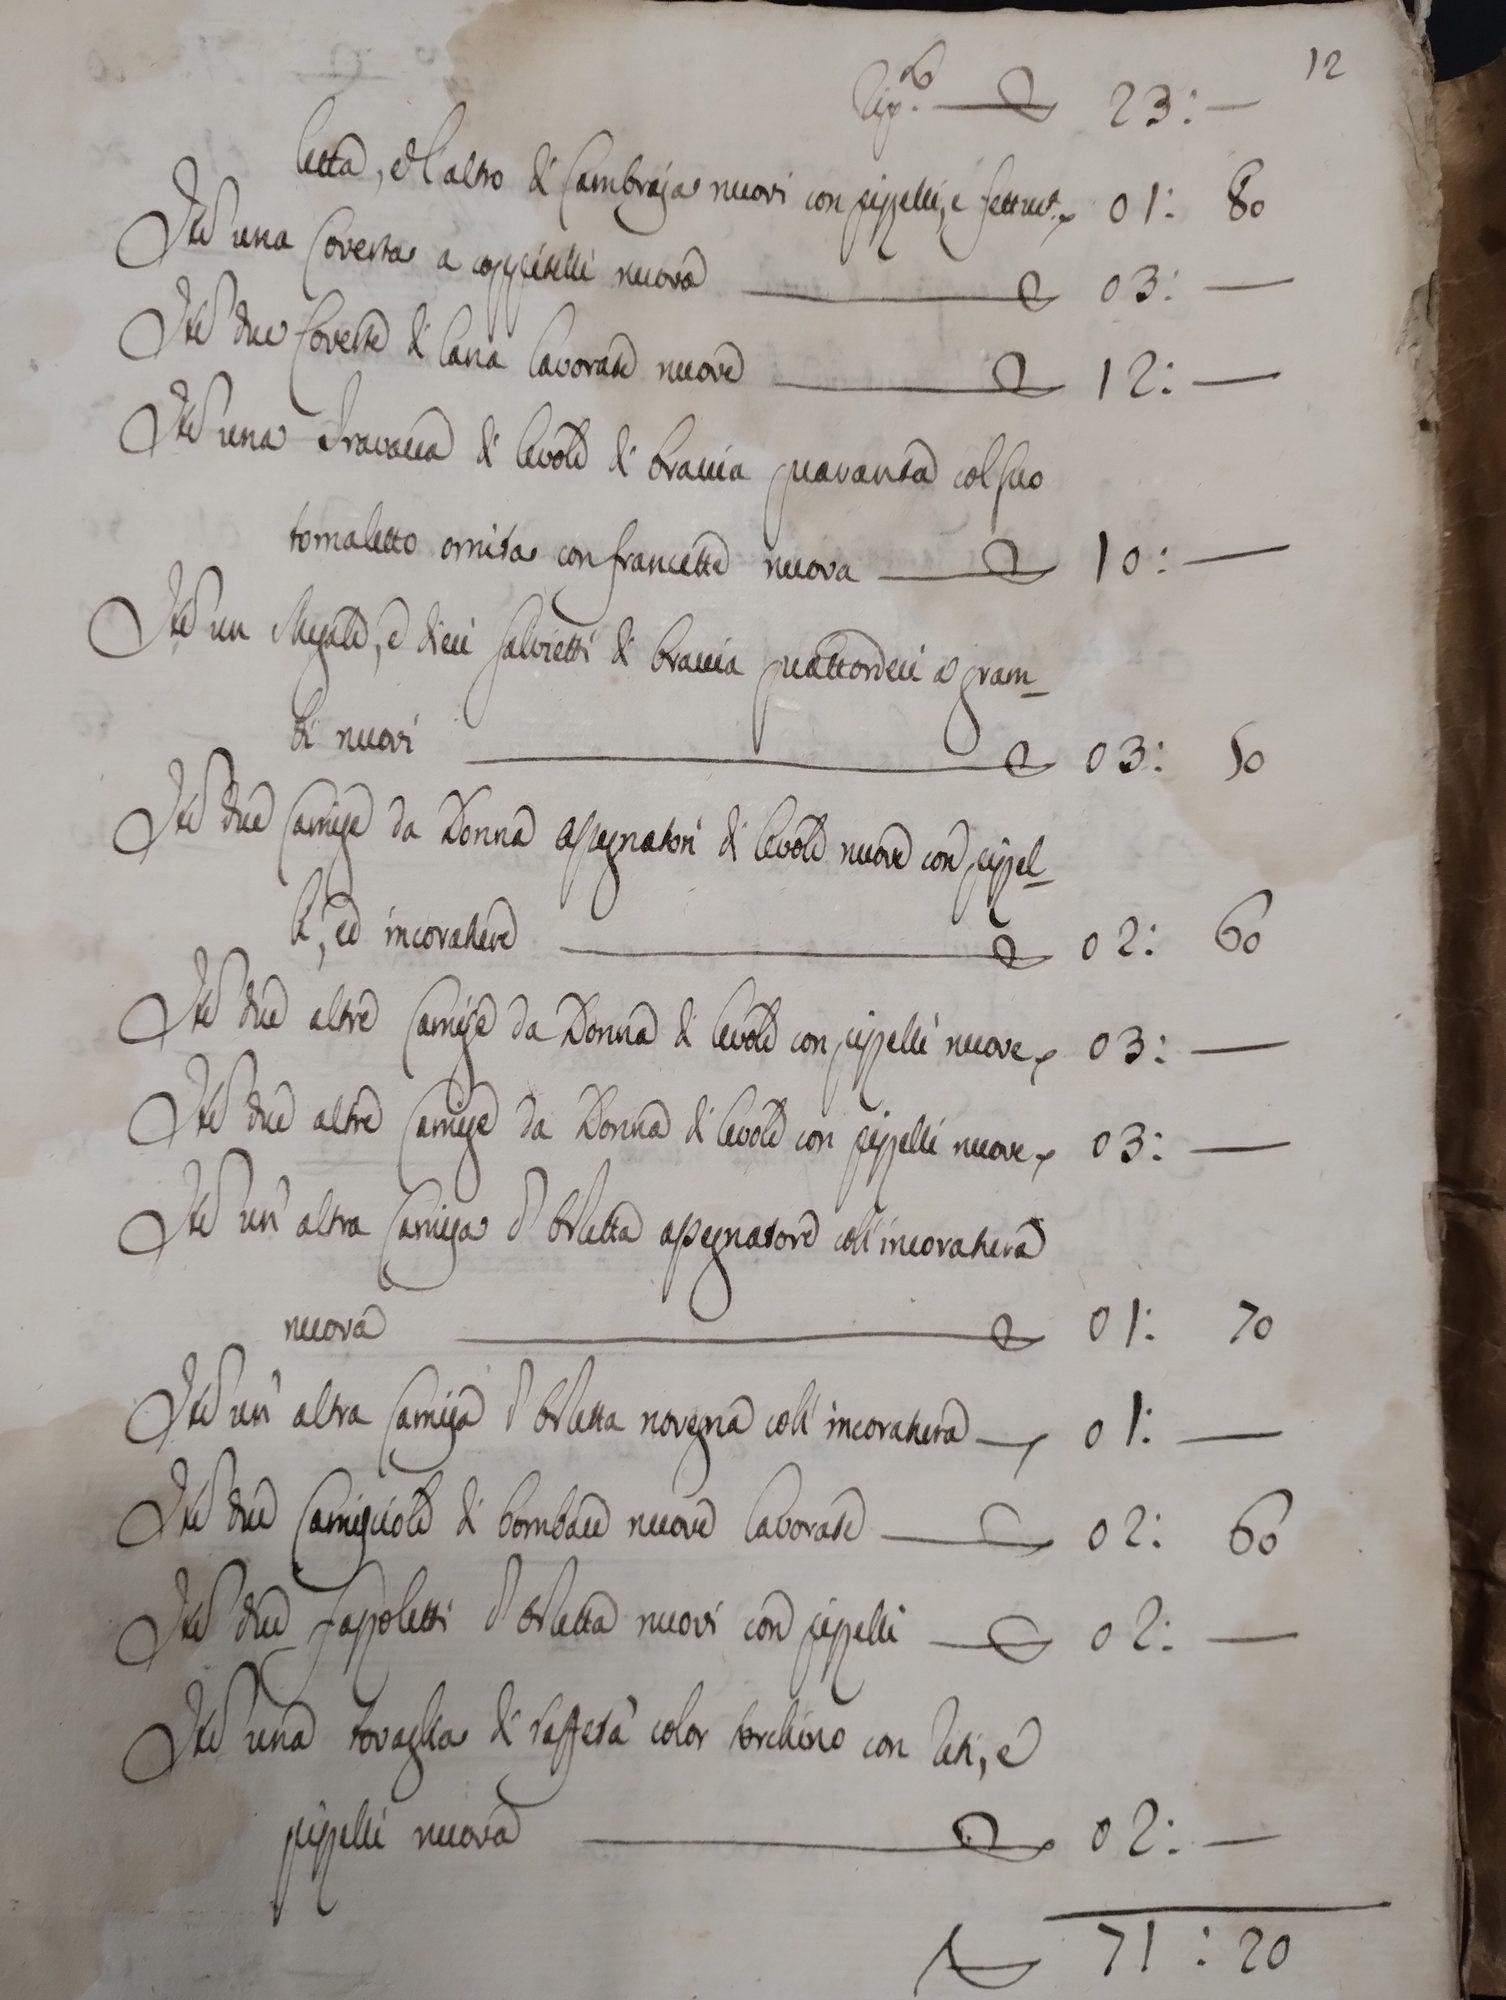 12
Rip.to 23: —
letta, e l'altro di Cambraja nuovi con pizzelli, e fettucc. 01: 80
Itē una Coverta a coppitelli nuova 03: —
Itē due Coverte di lana lavorate nuove 12: —
Itē una Travacca di levole di braccia quaranta col suo
tornaletto ornita con francette nuova 10: —
Itē un Mesale, e dieci salvietti di braccia quattordeci a gram-
bi nuovi 03: 50
Itē due Camise da Donna assegnatori di levole nuove con pizzel-
li, ed incoratiere 02: 60
Itē due altre Camise da Donna di levole con pizzelli nuove 03: —
Itē due altre Camise da Donna di levole con pizzelli nuove 03: —
Itē un' altra Camisa d' Orletta assegnatore coll' incoratiera
nuova 01: 70
Itē un' altra Camisa d' Orletta novegna coll' incoratiera 01: —
Itē due Camisciole di bombace nuove lavorate 02: 60
Itē due fazzoletti d' Orletta nuovi con pizzelli 02: —
Itē una tovaglia di taffetà color torchino con Reti, e
pizzelli nuova 02: —
71: 20